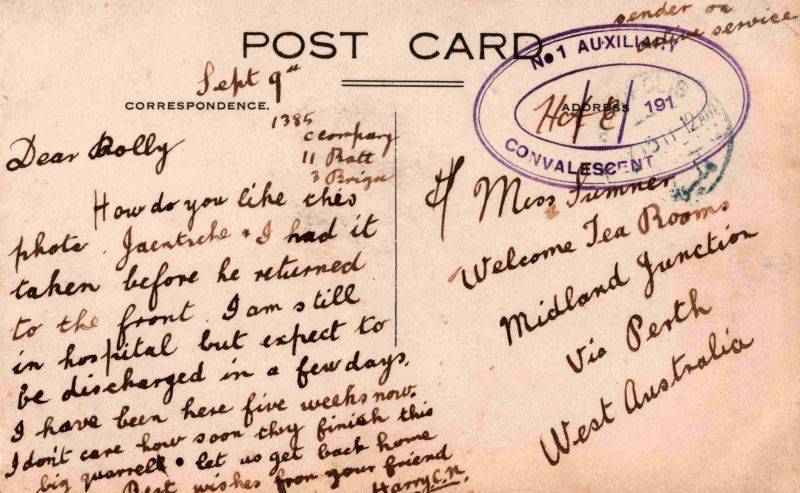 sender on
active service
POST CARD
No 1 AUXILIARY
191
CONVALESCENT
12 AM
Sept 9th
CORRESPONDENCE.
ADDRESS
1385
C Company
11 Batt
3 Briga
Dear Rolly
How do you like this
photo. Jaentsche & I had it
taken before he returned
to the front. I am still
in hospital but expect to
be discharged in a few days.
I have been here five weeks now.
I don't care how soon they finish this
big quarrell & let us get back home
Best wishes from your friend
Harry C.N.
Miss Sumner
Welcome Tea Rooms
Midland Junction
Via Perth
West Australia